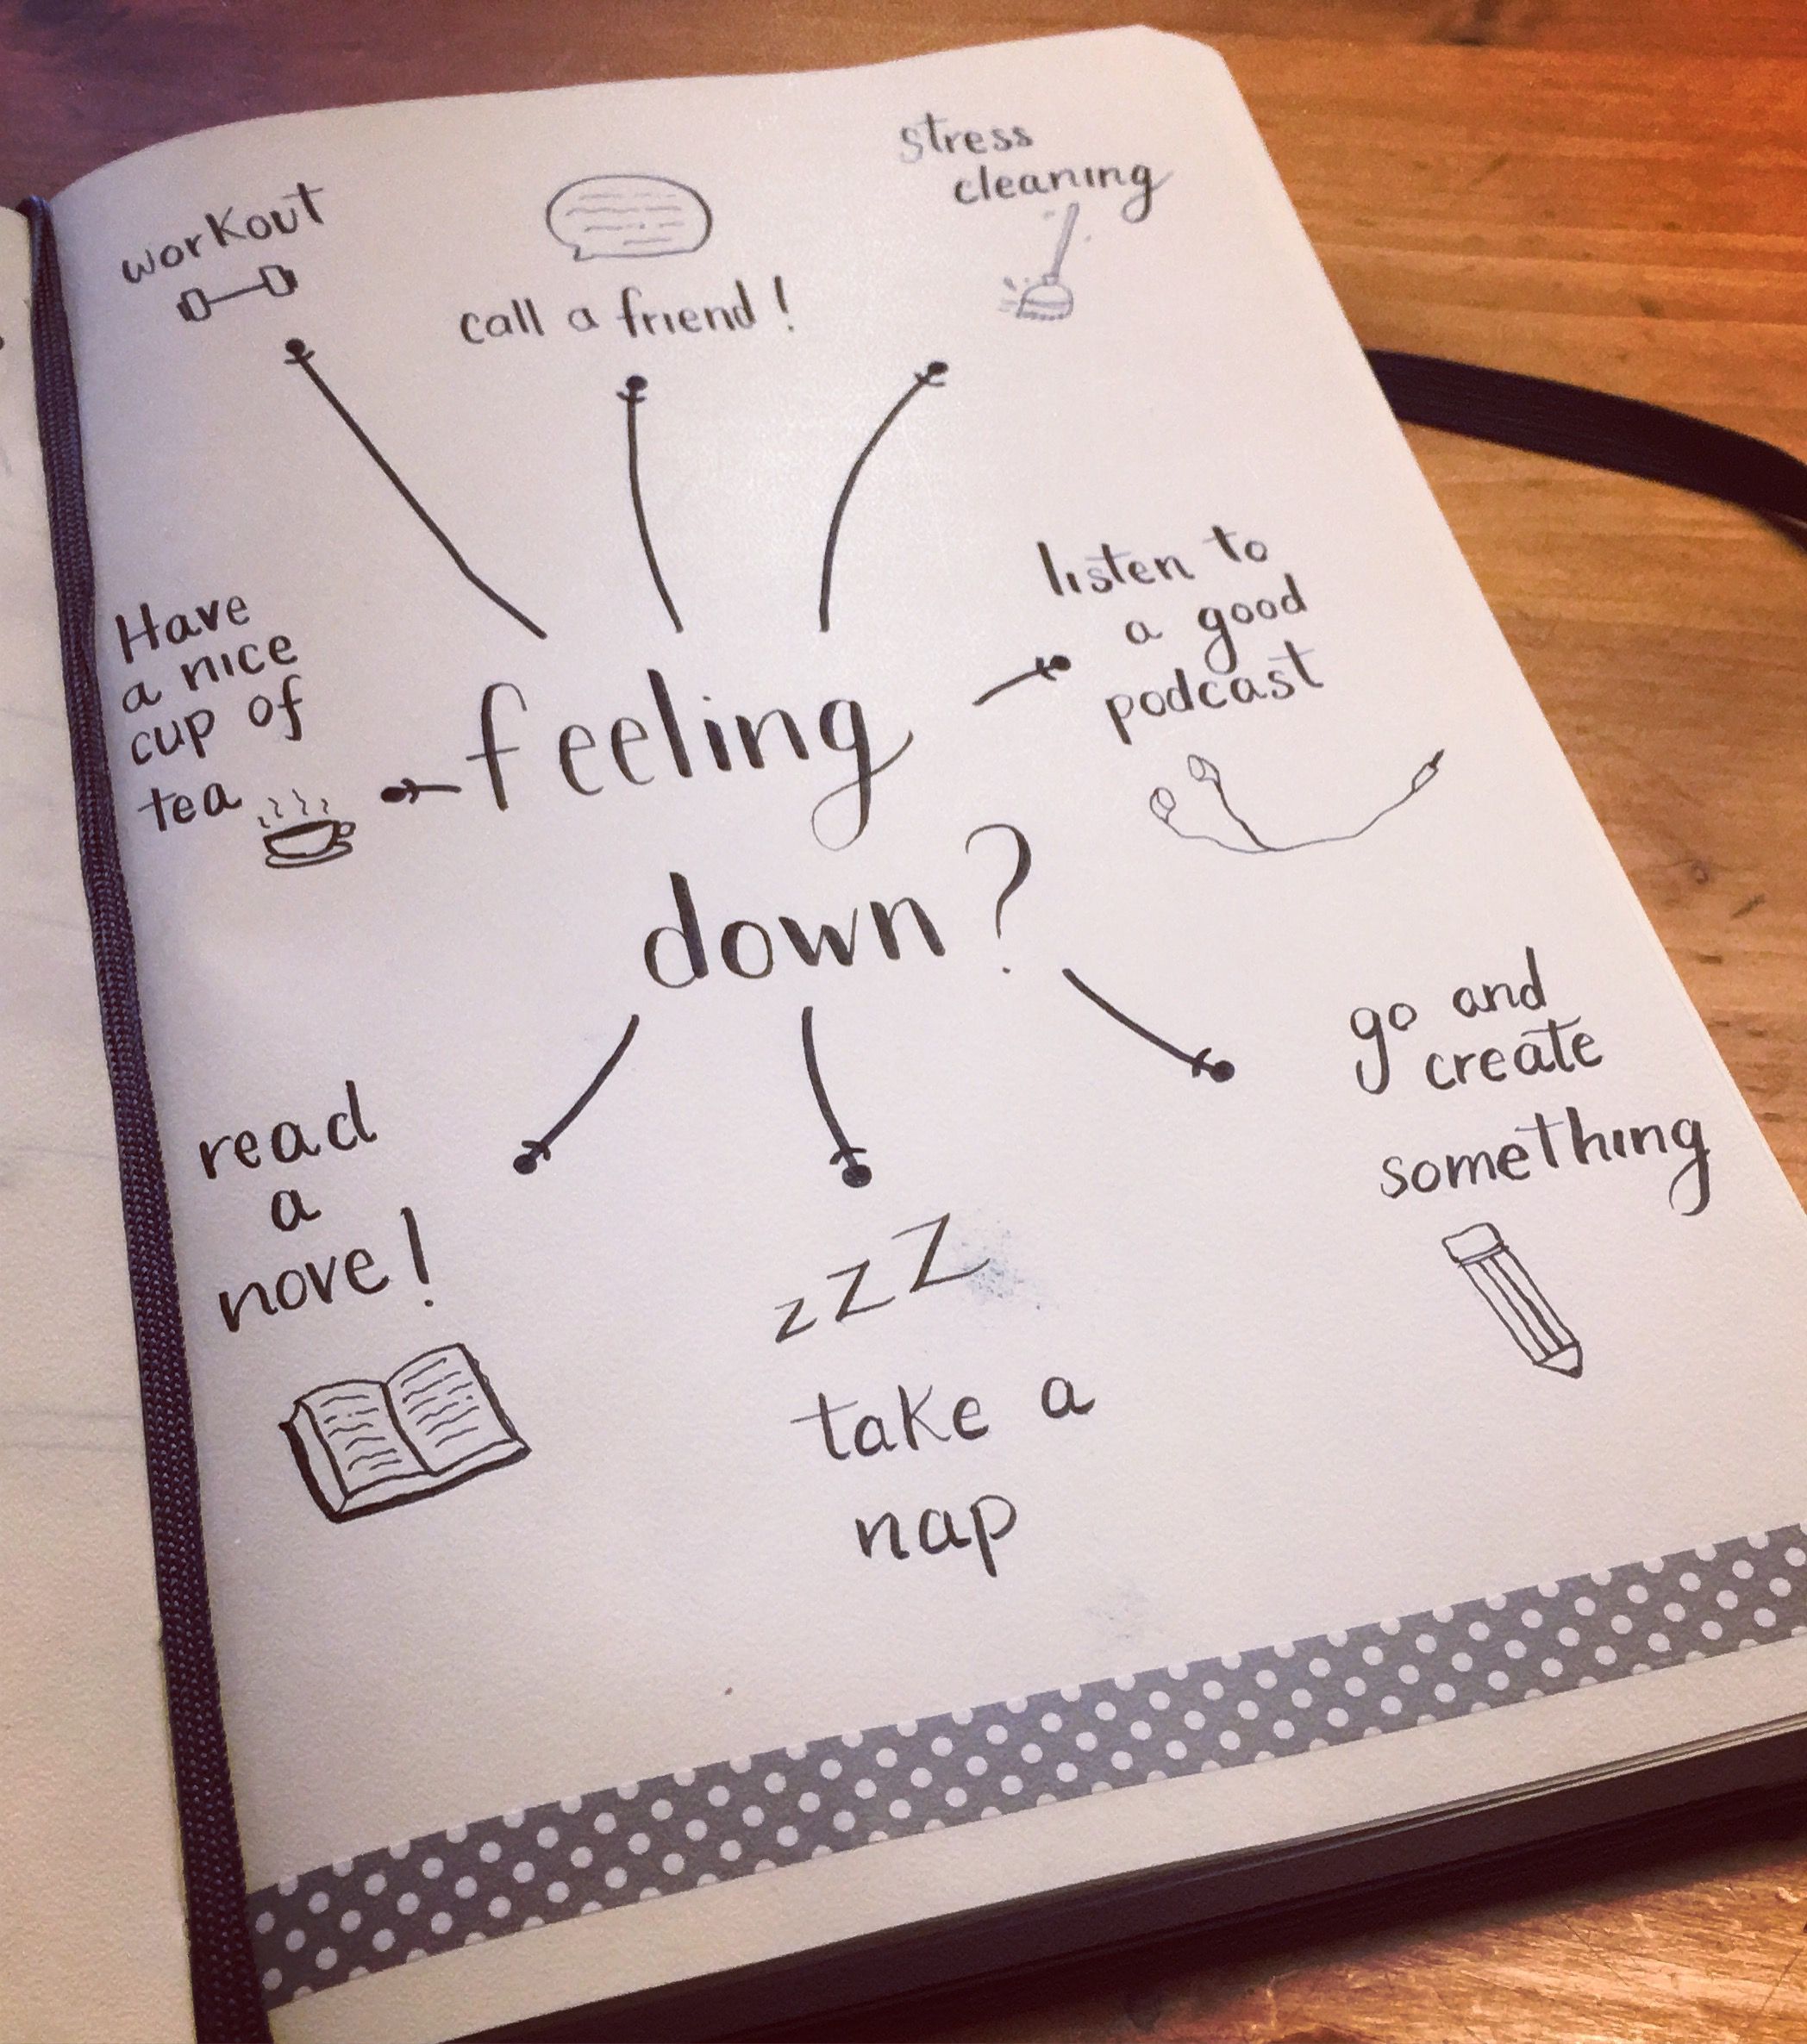 workout
call a friend!
stress
cleaning
Have
a nice
cup of
tea
feeling
down?
listen to
a good
podcast
read
a
nove!
zzZ
take a
nap
go and
create
something